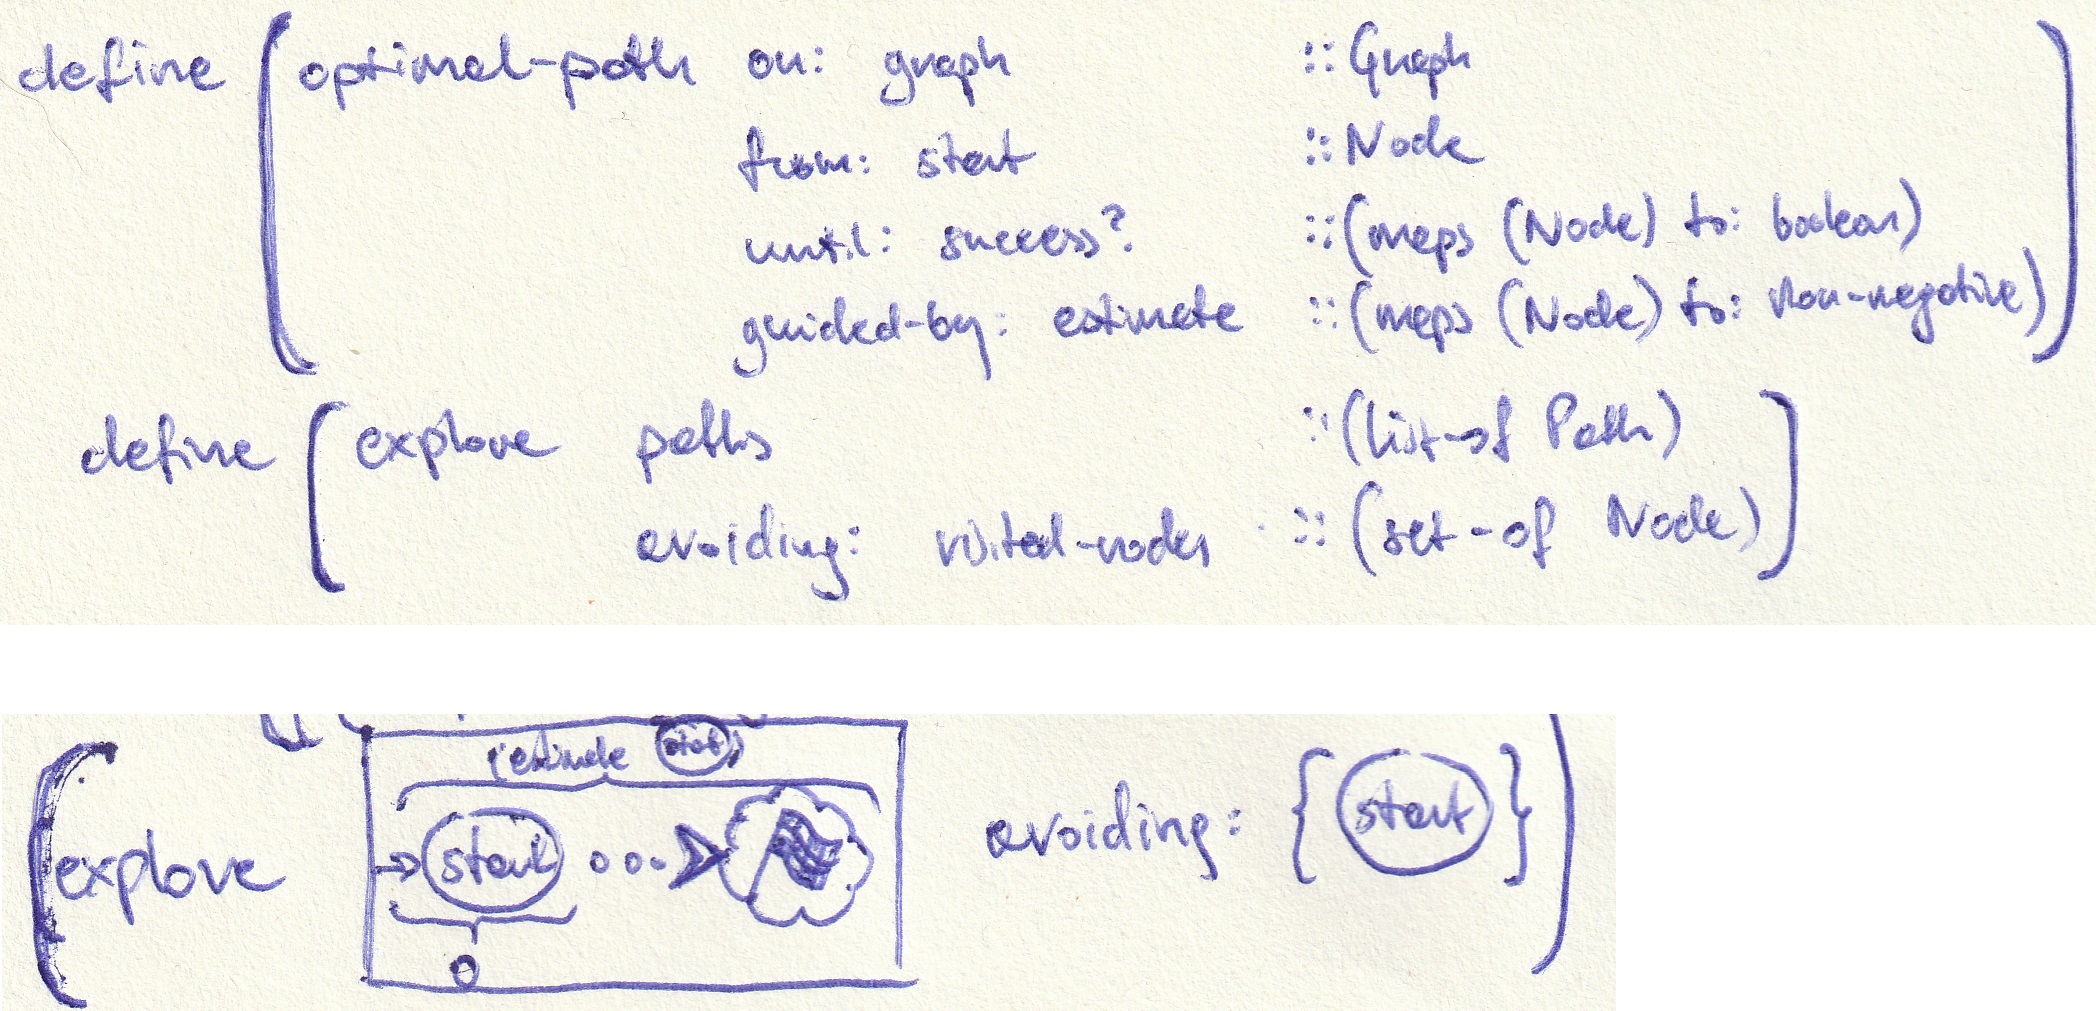 define (optimal-path on: graph :: Graph
from: start :: Node
until: success? :: (maps (Node) to: boolean)
guided-by: estimate :: (maps (Node) to: non-negative))
define (explore paths :: (list-of Path)
avoiding: visited-nodes :: (set-of Node))
(estimate start)
(explore → start avoiding: { start })
0